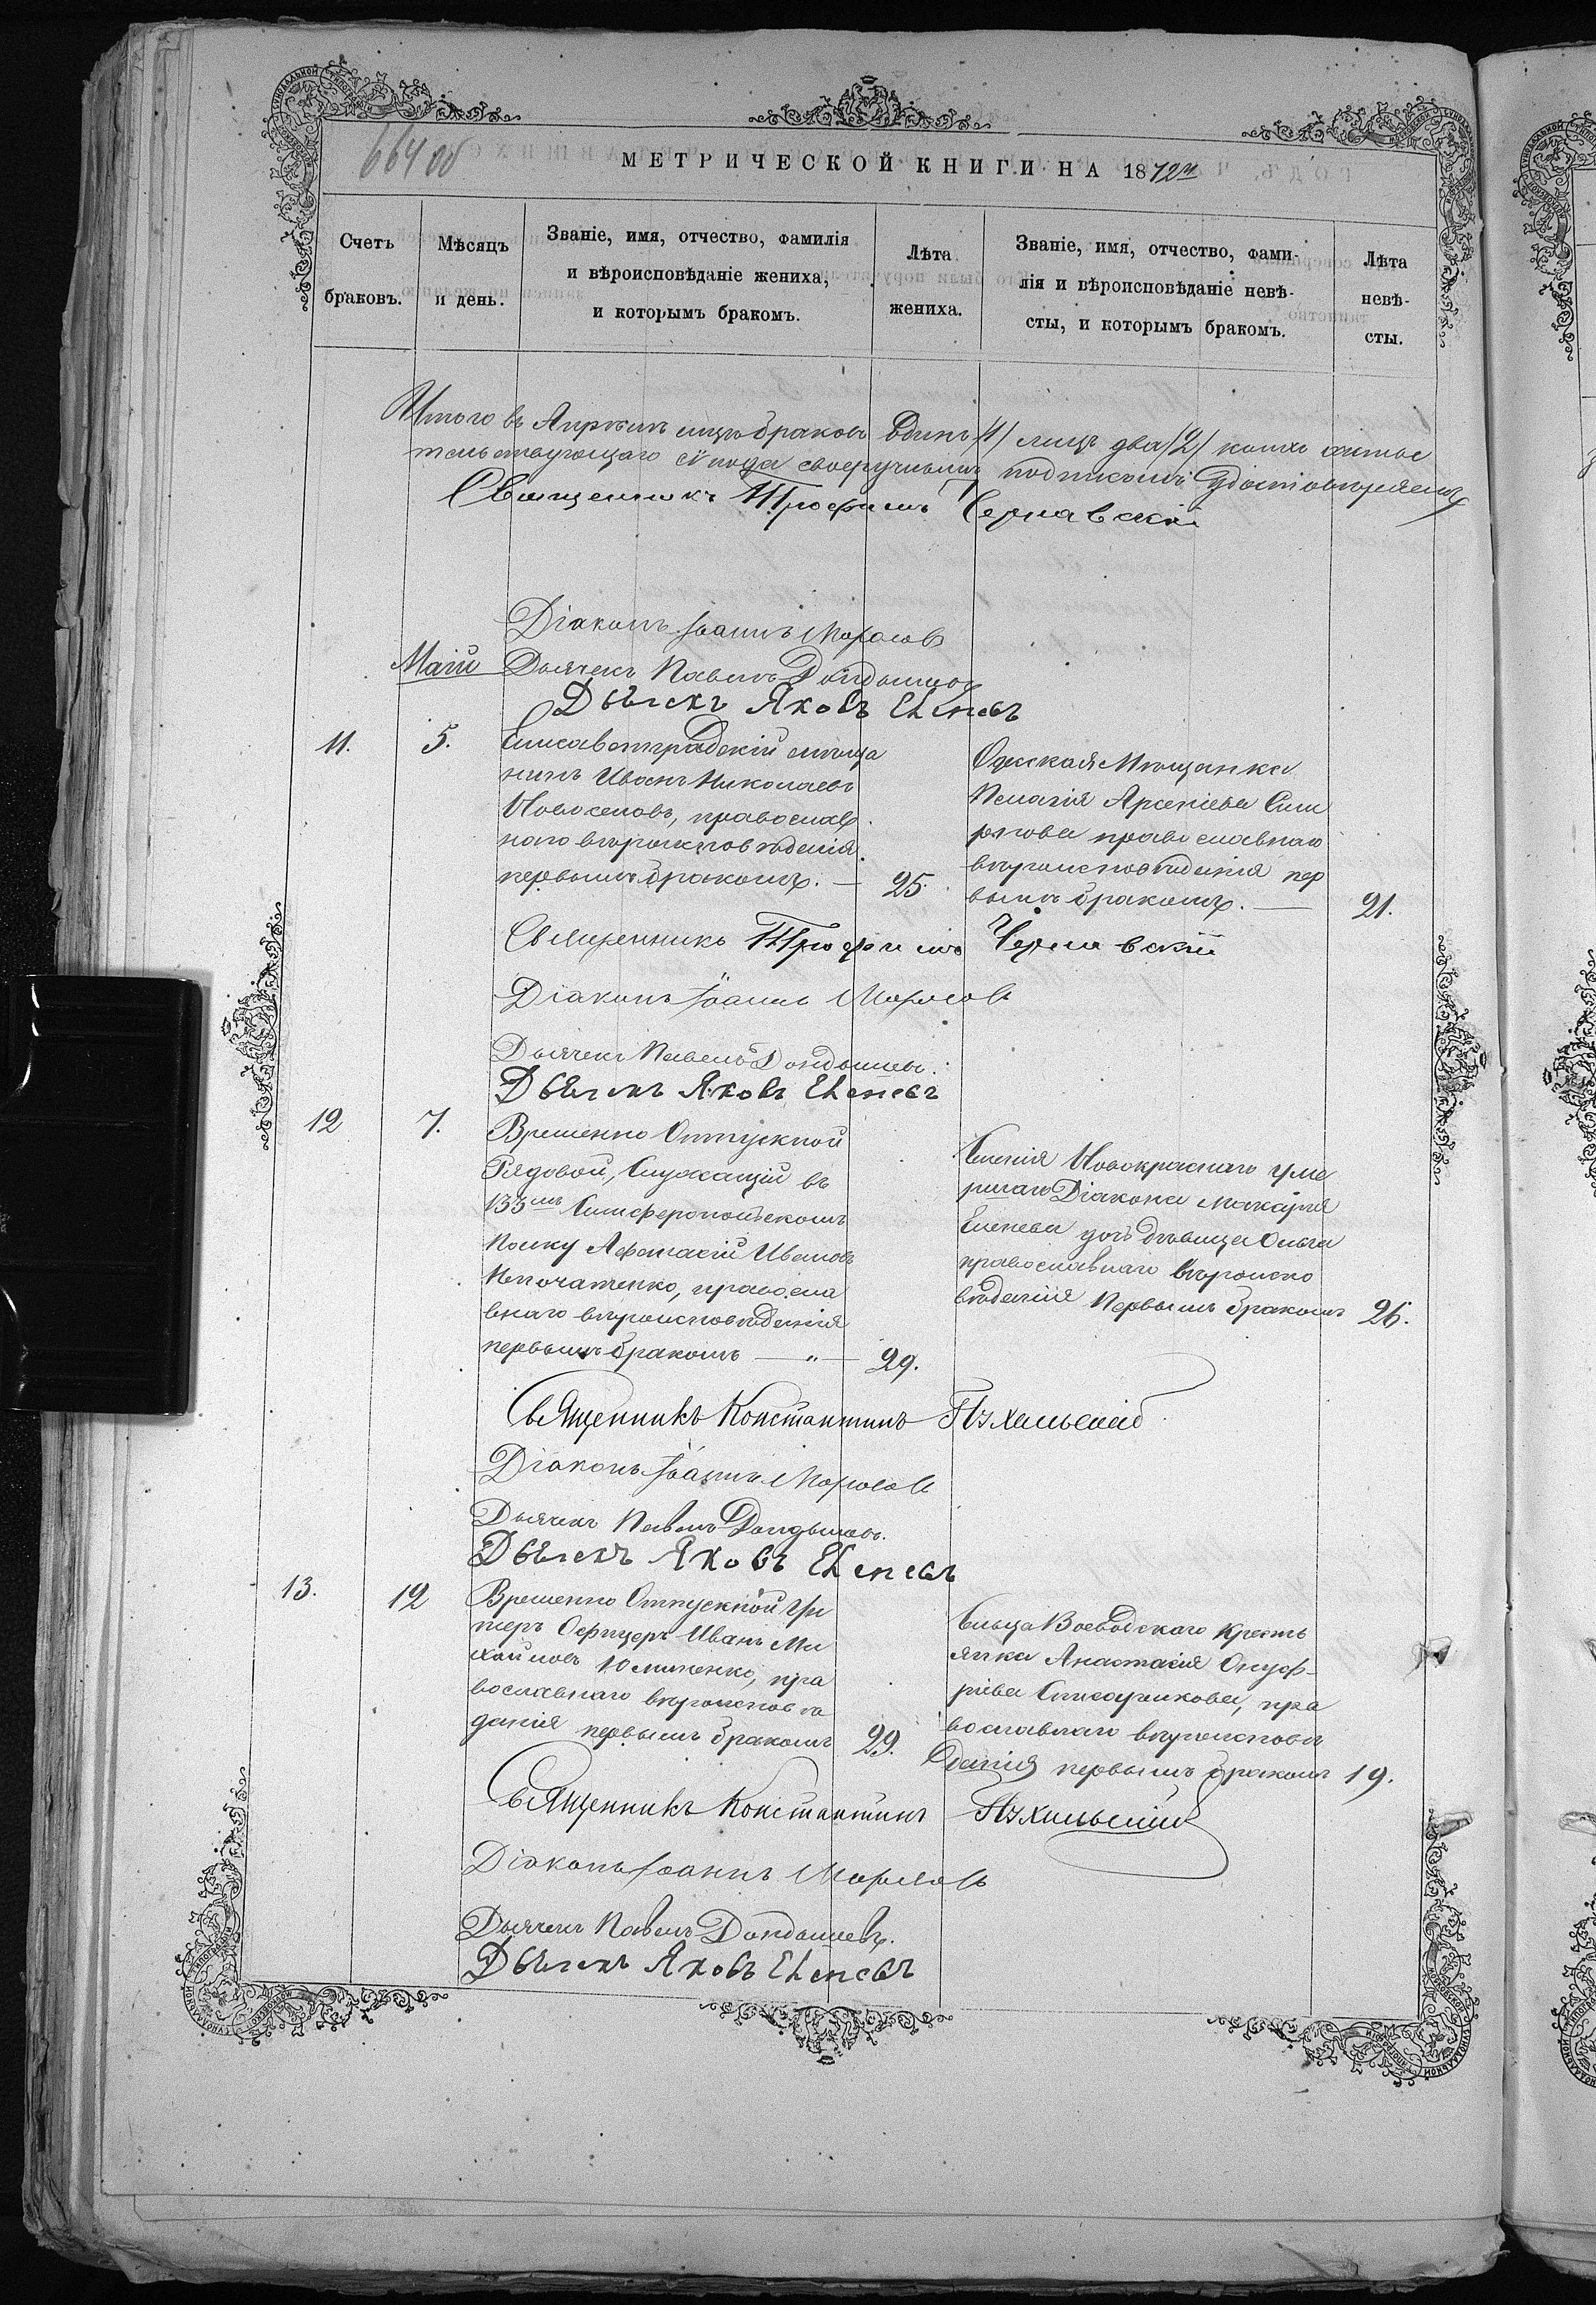 664 об
МЕТРИЧЕСКОЙ КНИГИ НА 1872й
Счетъ браковъ.
Мѣсяцъ и день.
Званіе, имя, отчество, фамилія
и вѣроисповѣданіе жениха,
и которымъ бракомъ.
Лѣта жениха.
Званіе, имя, отчество, фами-
лія и вѣроисповѣданіе невѣ-
сты, и которымъ бракомъ.
Лѣта невѣ-
сты.
Итого въ Апрѣлѣ мцѣ браковъ Одинъ /1/ лицъ два /2/
своеручнымъ подписомъ удостовѣряемъ
Священникъ Трофимъ Чернавскій
Діаконъ Іоаннъ Моросовъ
Маій
Дьячекъ Павелъ Дондышевъ
Дьячекъ Яковъ Еленевъ
11.
5.
Елисаветградскій мѣща
нинъ Иванъ Николаевъ
Новоселовъ, православ
наго вѣроисповѣданія
первымъ бракомъ. —
25.
Одеская Мѣщанка
Пелагія Арсеніева Сми
рнова православнаго
вѣроисповѣданія пер
вымъ бракомъ. —
21.
Священникъ Трофимъ Чернавскій
Діаконъ Іоаннъ Моросовъ
Дьячекъ Павелъ Дондышевъ.
Дьячекъ Яковъ Еленевъ
12
7.
Временно Отпускной
Рядовой, Служащій въ
133мъ Симферопольскомъ
Полку Афанасій Ивановъ
Непочатенко, правосла
внаго вѣроисповѣданія
первымъ бракомъ — „ —
29.
Селенія Новокраснаго уме
ршаго Діакона Макарія
Еленева дочь дѣвица Ольга
православнаго вѣроиспо
вѣданія Первымъ бракомъ
26.
Священникъ Константинъ Пухальскій
Діаконъ Іоаннъ Моросовъ
Дьячекъ Павелъ Дондышевъ.
Дьячекъ Яковъ Еленевъ
13.
12
Временно Отпускной Ун
теръ Офицеръ Иванъ Ми
хайловъ пра
вославнаго вѣроисповѣ
данія первымъ бракомъ
29.
Сельца Воеводскаго Кресть
янка Анастасія Онуф-
ріева пра
вославнаго вѣроисповѣ
данія первымъ бракомъ
19.
Священникъ Константинъ Пухальскій
Діаконъ Іоаннъ Моросовъ
Дьячекъ Павелъ Дондышевъ.
Дьячекъ Яковъ Еленевъ